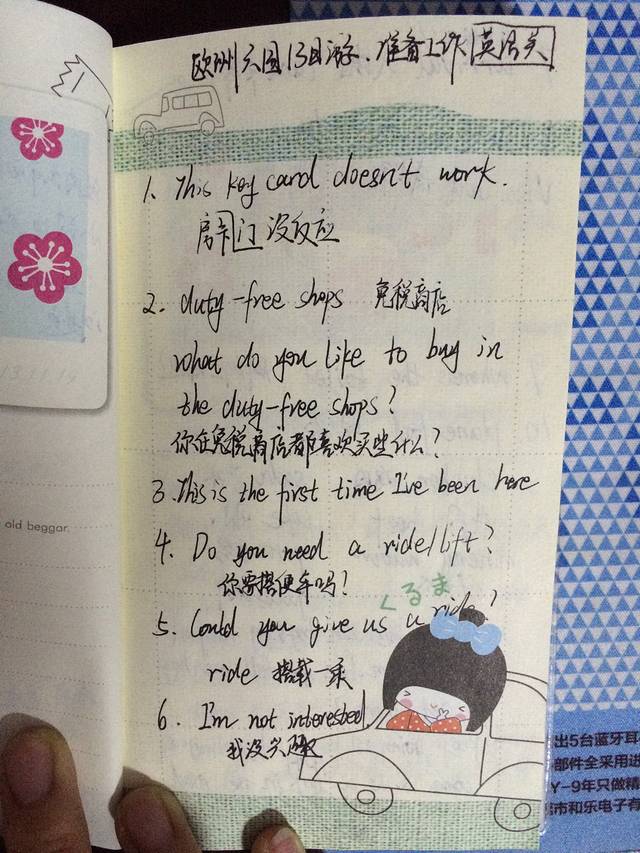 欧洲六国13日游.准备工作 英语关
1. This key card doesn't work.
房门没反应
2. duty-free shops 免税商店
what do you like to buy in
the duty-free shops?
你在免税商店都喜欢买些什么?
3. This is the first time I've been here
4. Do you need a ride/lift?
你要搭便车吗?
くるま
5. Could you give us a ride?
ride 搭载一乘
6. I'm not interested
我没兴趣
old beggar.
出5台蓝牙耳
部件全采用进
Y-9年只做精
市和乐电子有